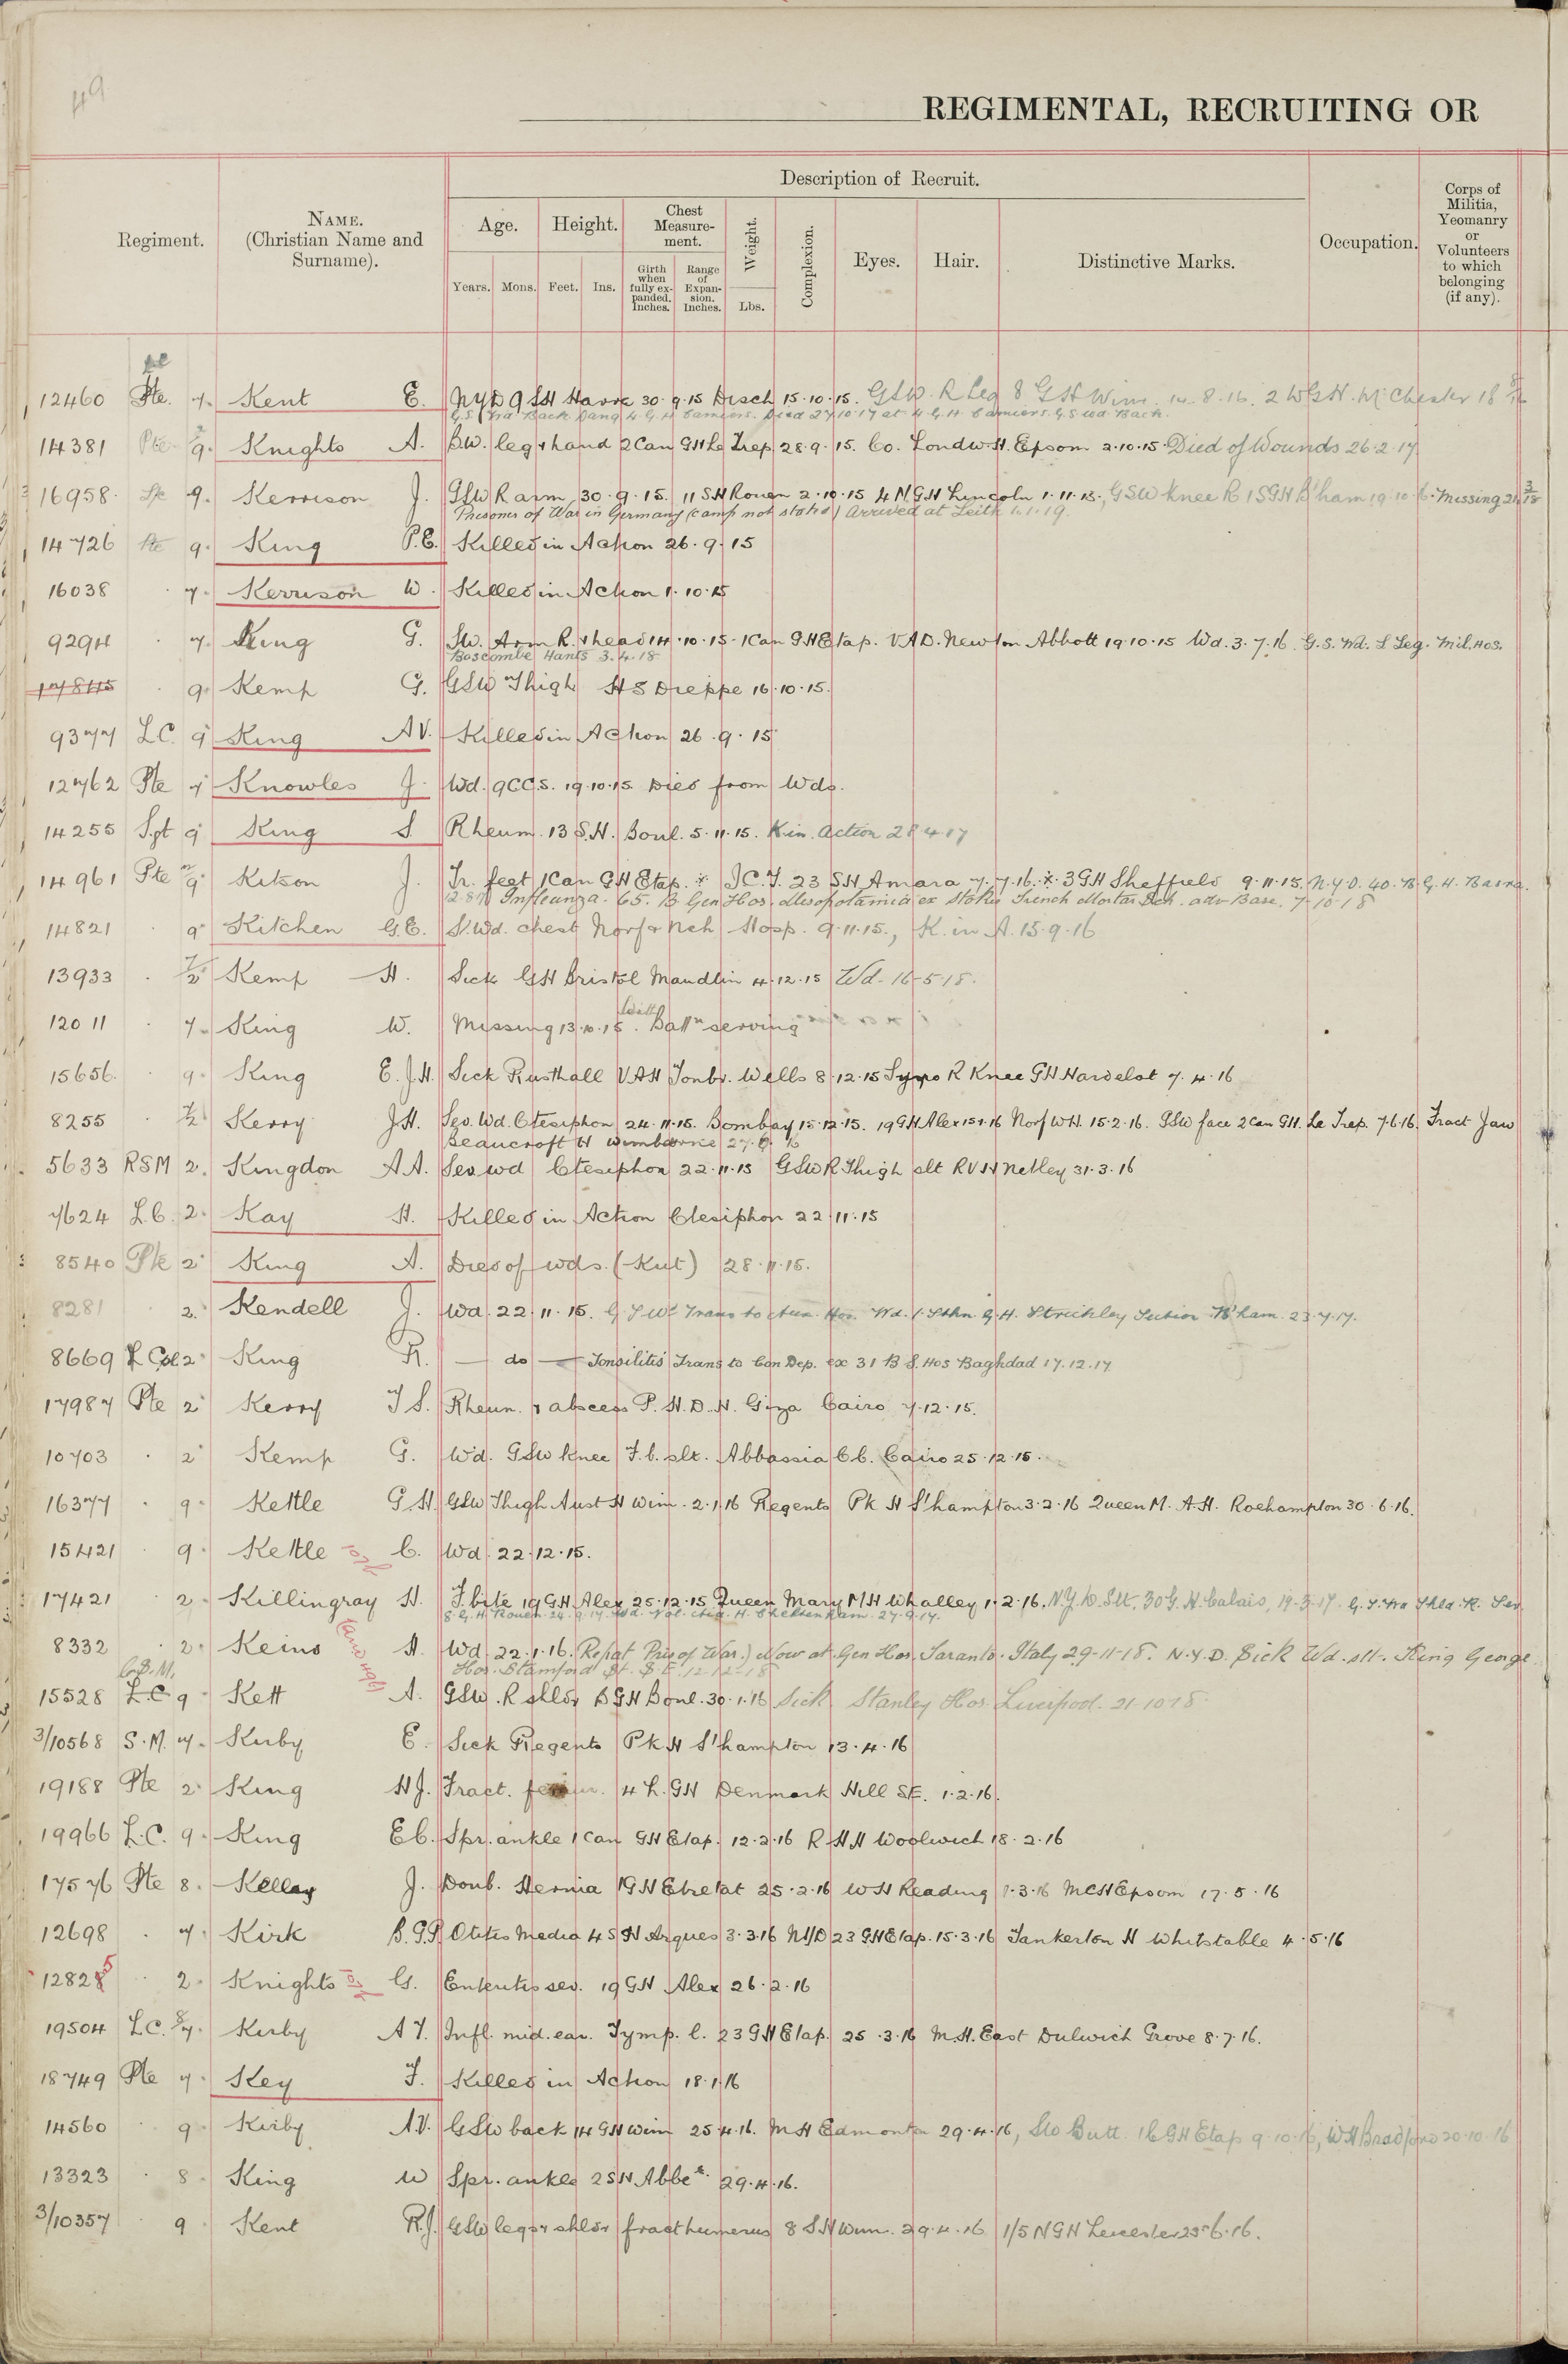 49
REGIMENTAL, RECRUITING OR
Description of Recruit.
Regiment.
NAME.
(Christian Name and
Surname).
Age.
Height.
Chest
Measure-
ment.
Weight.
Complexion.
Eyes.
Hair.
Distinctive Marks.
Occupation.
Corps of
Militia,
Yeomanry
or
Volunteers
to which
belonging
(if any).
Years.
Mons.
Feet.
Ins.
Girth
when
fully ex-
panded.
Inches.
Range
of
Expan-
sion.
Inches.
Lbs.
12460 Pte. 7. Kent E. NYD 9 SH Havre 30.9.15 Disch 15.10.15. GSW. R Leg 8 GH Wim. 14.8.16. 2 WGH. M'Chester 18
G.S. Wd Back Dang 4 G.H. Camiers. Died 27.10.17 at 4 G.H. Camiers. G.S Wd. Back.
14381 Pte 9. Knights A. B.W. leg & hand 2 Can GH Le Trep. 28.9.15. Co. Lond W.H. Epsom 2.10.15 Died of Wounds 26.2.17
16958. 9. Kerrison J. GSW R arm 30.9.15. 11 SH Rouen 2.10.15 4 N.GH Lincoln 1.11.15., GSW Knee R 1SGH B'ham 19.10.16. Missing 21 3/18
Prisoner of War in Germany (camp not stated) Arrived at Leith 4.1.19.
14726 Pte 9. King P.E. Killed in Action 26.9.15
16038 7. Kerrison W. Killed in Action 1.10.15
9294 7. King G. SW. Arm R. & head 14.10.15 - 1 Can GH Etap. VAD. Newton Abbott 19.10.15 Wd. 3.7.16. G.S. Wd. L Leg. Mil. Hos.
Boscombe Hants 3.4.18
17845 9. Kemp G. GSW Thigh HS Dieppe 16.10.15.
9377 L.C. 9 King A V. Killed in Action 26.9.15
12762 Pte 7 Knowles J. Wd. 9CCS. 19.10.15. Died from Wds.
14255 Sgt 9 King S Rheum. 13 S.H. Boul. 5.11.15. K. in. Action 28.4.17
14961 Pte 9 Kitson J. Tr. feet 1 Can GH Etap. * I.C.T. 23 SH Amara 7.7.16. * 3 GH Sheffield 9.11.15. N.Y.D. 40. B.G.H. Basra.
Influenza. 65. B. Gen Hos. Mesopotamia ex Stokes Trench Mortar Sch. adv Base. 7-10-18
14821 9 Kitchen G.E. S. Wd. chest Norf & Nch Hosp. 9.11.15., K. in A. 15.9.16
13933 7/2 Kemp H. Sick GH Bristol Maudlin 4.12.15 Wd. 16-5-18.
12011 7. King W. Missing 13.10.15. With Battn serving
15656. 9. King E.J.H. Sick Rusthall VAH Tonbr. Wells 8.12.15 Syno R Knee GH Hardelot 7.4.16
8255 7/2 Kerry J.H. Sev. Wd. Ctesiphon 24.11.15. Bombay 15.12.15. 19 GH Alex 15.1.16 Norf WH. 15.2.16. GSW face 2 Can GH. Le Trep. 7.6.16. Fract Jaw
Beaucroft H Wimborne 27.6.16
5633 RSM 2. Kingdon A.A. Sev wd Ctesiphon 22.11.15 GSW R Thigh slt RVH Netley 31.3.16
7624 L.C. 2. Kay H. Killed in Action Ctesiphon 22.11.15
8540 Pte 2 King A. Died of wds. (Kut) 28.11.15.
8281 2. Kendell J. Wd. 22.11.15. G.S Wd Trans to Aux. Hos. Wd. 1. Sthn. G.H. Stirchley Section B'ham. 23.7.17.
8669 L Cpl 2 King R. — do — Tonsilitis Trans to Con Dep. ex 31 B S. Hos Baghdad 17.12.17
17987 Pte 2 Kerry T S. Rheum. & abscess P. H.D.H. Giza Cairo 7.12.15.
10703 2 Kemp G. Wd. GSW Knee F.b. slt. Abbassia Cairo 25.12.15.
16377 9. Kettle G H. GSW Thigh Aust H Wim. 2.1.16 Regents Pk H S'hampton 3.2.16 Queen M. A.H. Roehampton 30.6.16.
15421 9. Kettle C. Wd. 22.12.15.
17421 2. Killingray H. F. bite 19 GH Alex 25.12.15 Queen Mary MH Whalley 1.2.16. N.Y.D. Slt. 30 G.H. Calais, 19.3.17. G.S. Wd Shld. R. Sev.
8.G.H. Rouen 24.9.17. Wd. Vol. Aid. H. Cheltenham. 27.9.17.
8332 2. Keins H. Wd. 22.1.16. (Repat Pris of War.) Now at Gen Hos. Taranto. Italy 29-11-18. N.Y.D. Sick Wd. slt. King George
Hos. Stamford St. S.E. 12-12-18
C.S.M.
15528 L.C. 9 Kett A. GSW. R shldr B GH Boul. 30.1.16 Sick Stanley Hos Liverpool. 21-10-18
3/10568 S.M. 7. Kirby E. Sick Regents Pk H S'hampton 13.4.16
19188 Pte 2 King H J. Fract. femur. 4 L. GH Denmark Hill SE. 1.2.16.
19966 L.C. 9. King E C. Spr. ankle 1 Can GH Etap. 12.2.16 R H H Woolwich 18.2.16
17576 Pte 8. Kelley J. Doub. Hernia 1 GH Etretat 25.2.16 WH Reading 1.3.16 MCH Epsom 17.5.16
12698 7. Kirk B.G.P. Otitis Media 4 SH Arques 3.3.16 NYD 23 GH Etap. 15.3.16 Tankerton H Whitstable 4.5.16
12825 2. Knights G. Enteritis sev. 19 GH Alex 26.2.16
19504 L.C. 8/7. Kirby A T. Infl. mid. ear. Tymp. l. 23 GH Etap. 25.3.16 M.H. East Dulwich Grove 8.7.16.
18749 Pte 7. Key F. Killed in Action 18.1.16
14560 9. Kirby A.V. GSW back 14 GH Wim 25.4.16. MH Edmonton 29.4.16, SW Butt. 1 C GH Etap 9.10.16, WH Bradford 20.10.16
13323 8. King W Spr. ankle 2 SH Abbe. 29.4.16.
3/10357 9 Kent R.J. GSW legs & shldr fract humerus 8 SH Wim. 29.4.16 1/5 NGH Leicester 23.6.16.